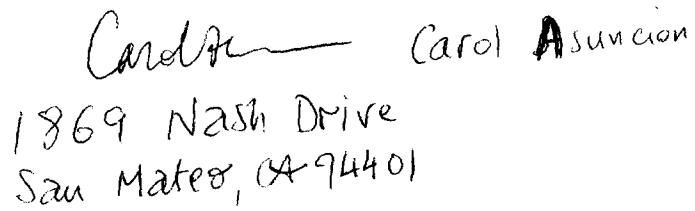 Carol A Carol Asuncion
1869 Nash Drive
San Mateo, CA 94401